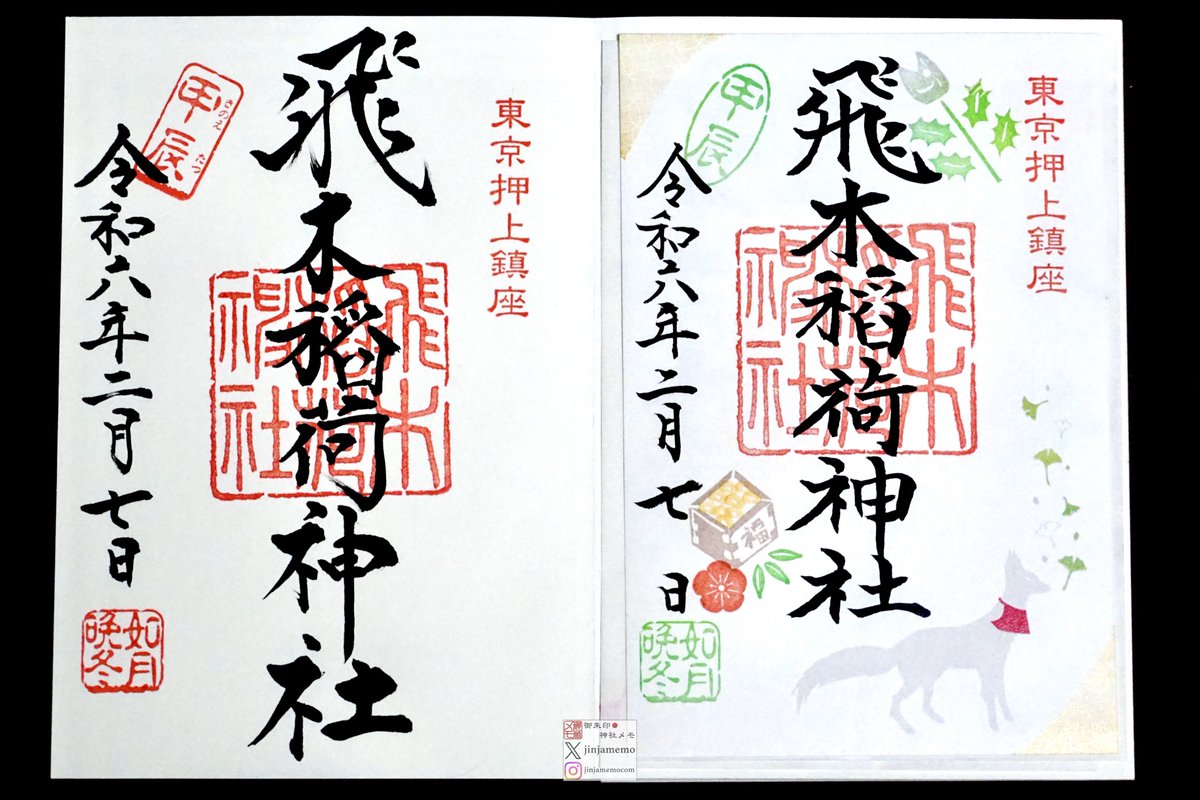 東京押上鎮座
飛木稲荷神社
飛木稲荷神社
甲辰
きのえ たつ
令和六年二月七日
如月
晩冬
東京押上鎮座
飛木稲荷神社
飛木稲荷神社
甲辰
令和六年二月七日
福
如月
晩冬
御朱印●
神社メモ
jinjamemo
jinjamemocom